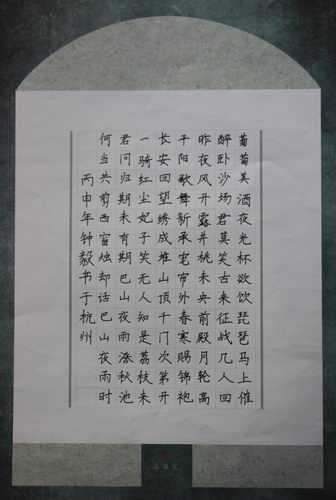 葡萄美酒夜光杯欲饮琵琶马上催
醉卧沙场君莫笑古来征战几人回
昨夜风开露井桃未央前殿月轮高
平阳歌舞新承宠帘外春寒赐锦袍
长安回望绣成堆山顶千门次第开
一骑红尘妃子笑无人知是荔枝来
君问归期未有期巴山夜雨涨秋池
何当共剪西窗烛却话巴山夜雨时
丙申年钟毅书于杭州